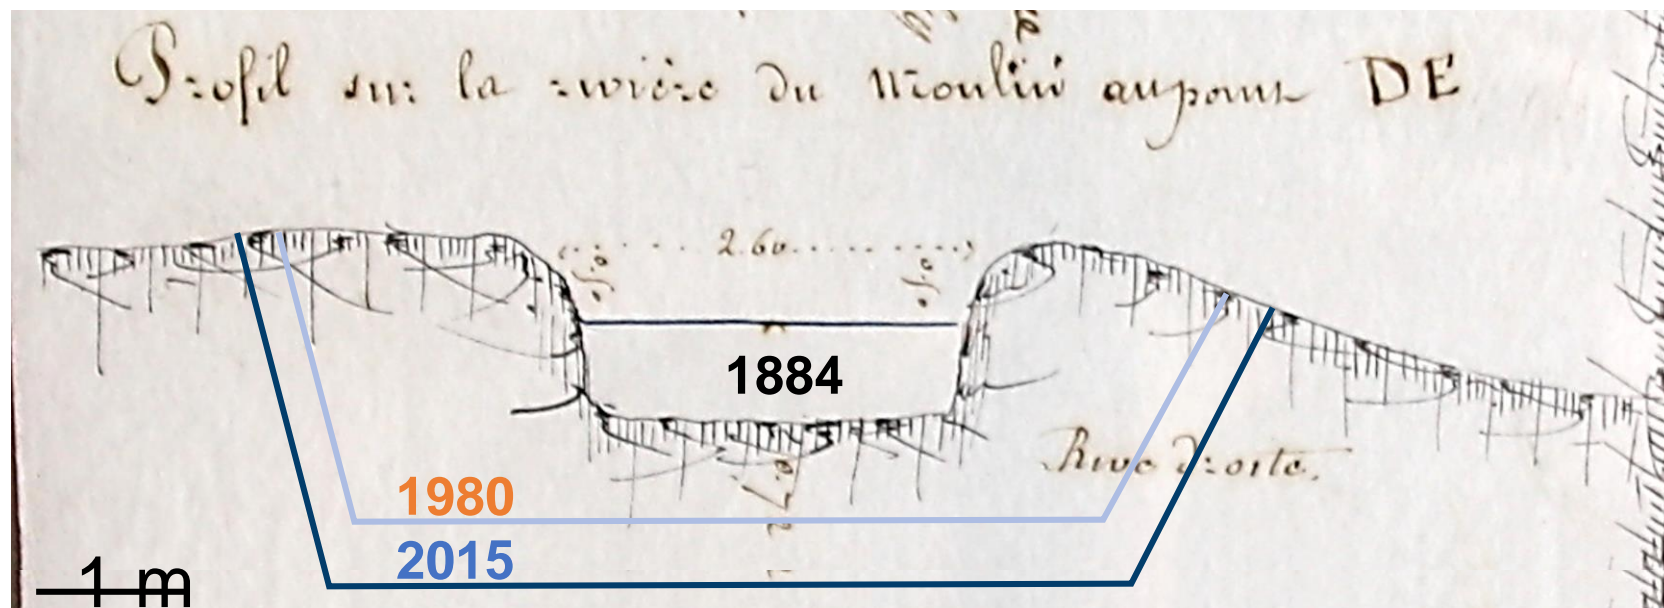 Profil sur la rivière du Moulin au point DE
2.60
1884
Rive droite.
1980
2015
1 m